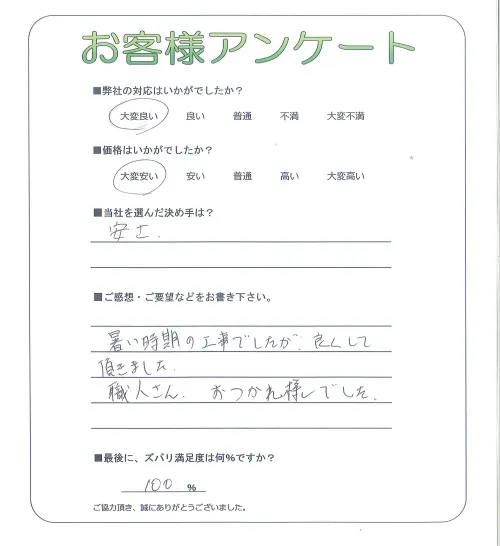 お客様アンケート
■弊社の対応はいかがでしたか？
大変良い 良い 普通 不満 大変不満
■価格はいかがでしたか？
大変安い 安い 普通 高い 大変高い
■当社を選んだ決め手は？
安さ.
■ご感想・ご要望などをお書き下さい。
暑い時期の工事でしたが、良くして
頂きました.
職人さん. おつかれ様しでした.
■最後に、ズバリ満足度は何％ですか？
100 ％
ご協力頂き、誠にありがとうございました。